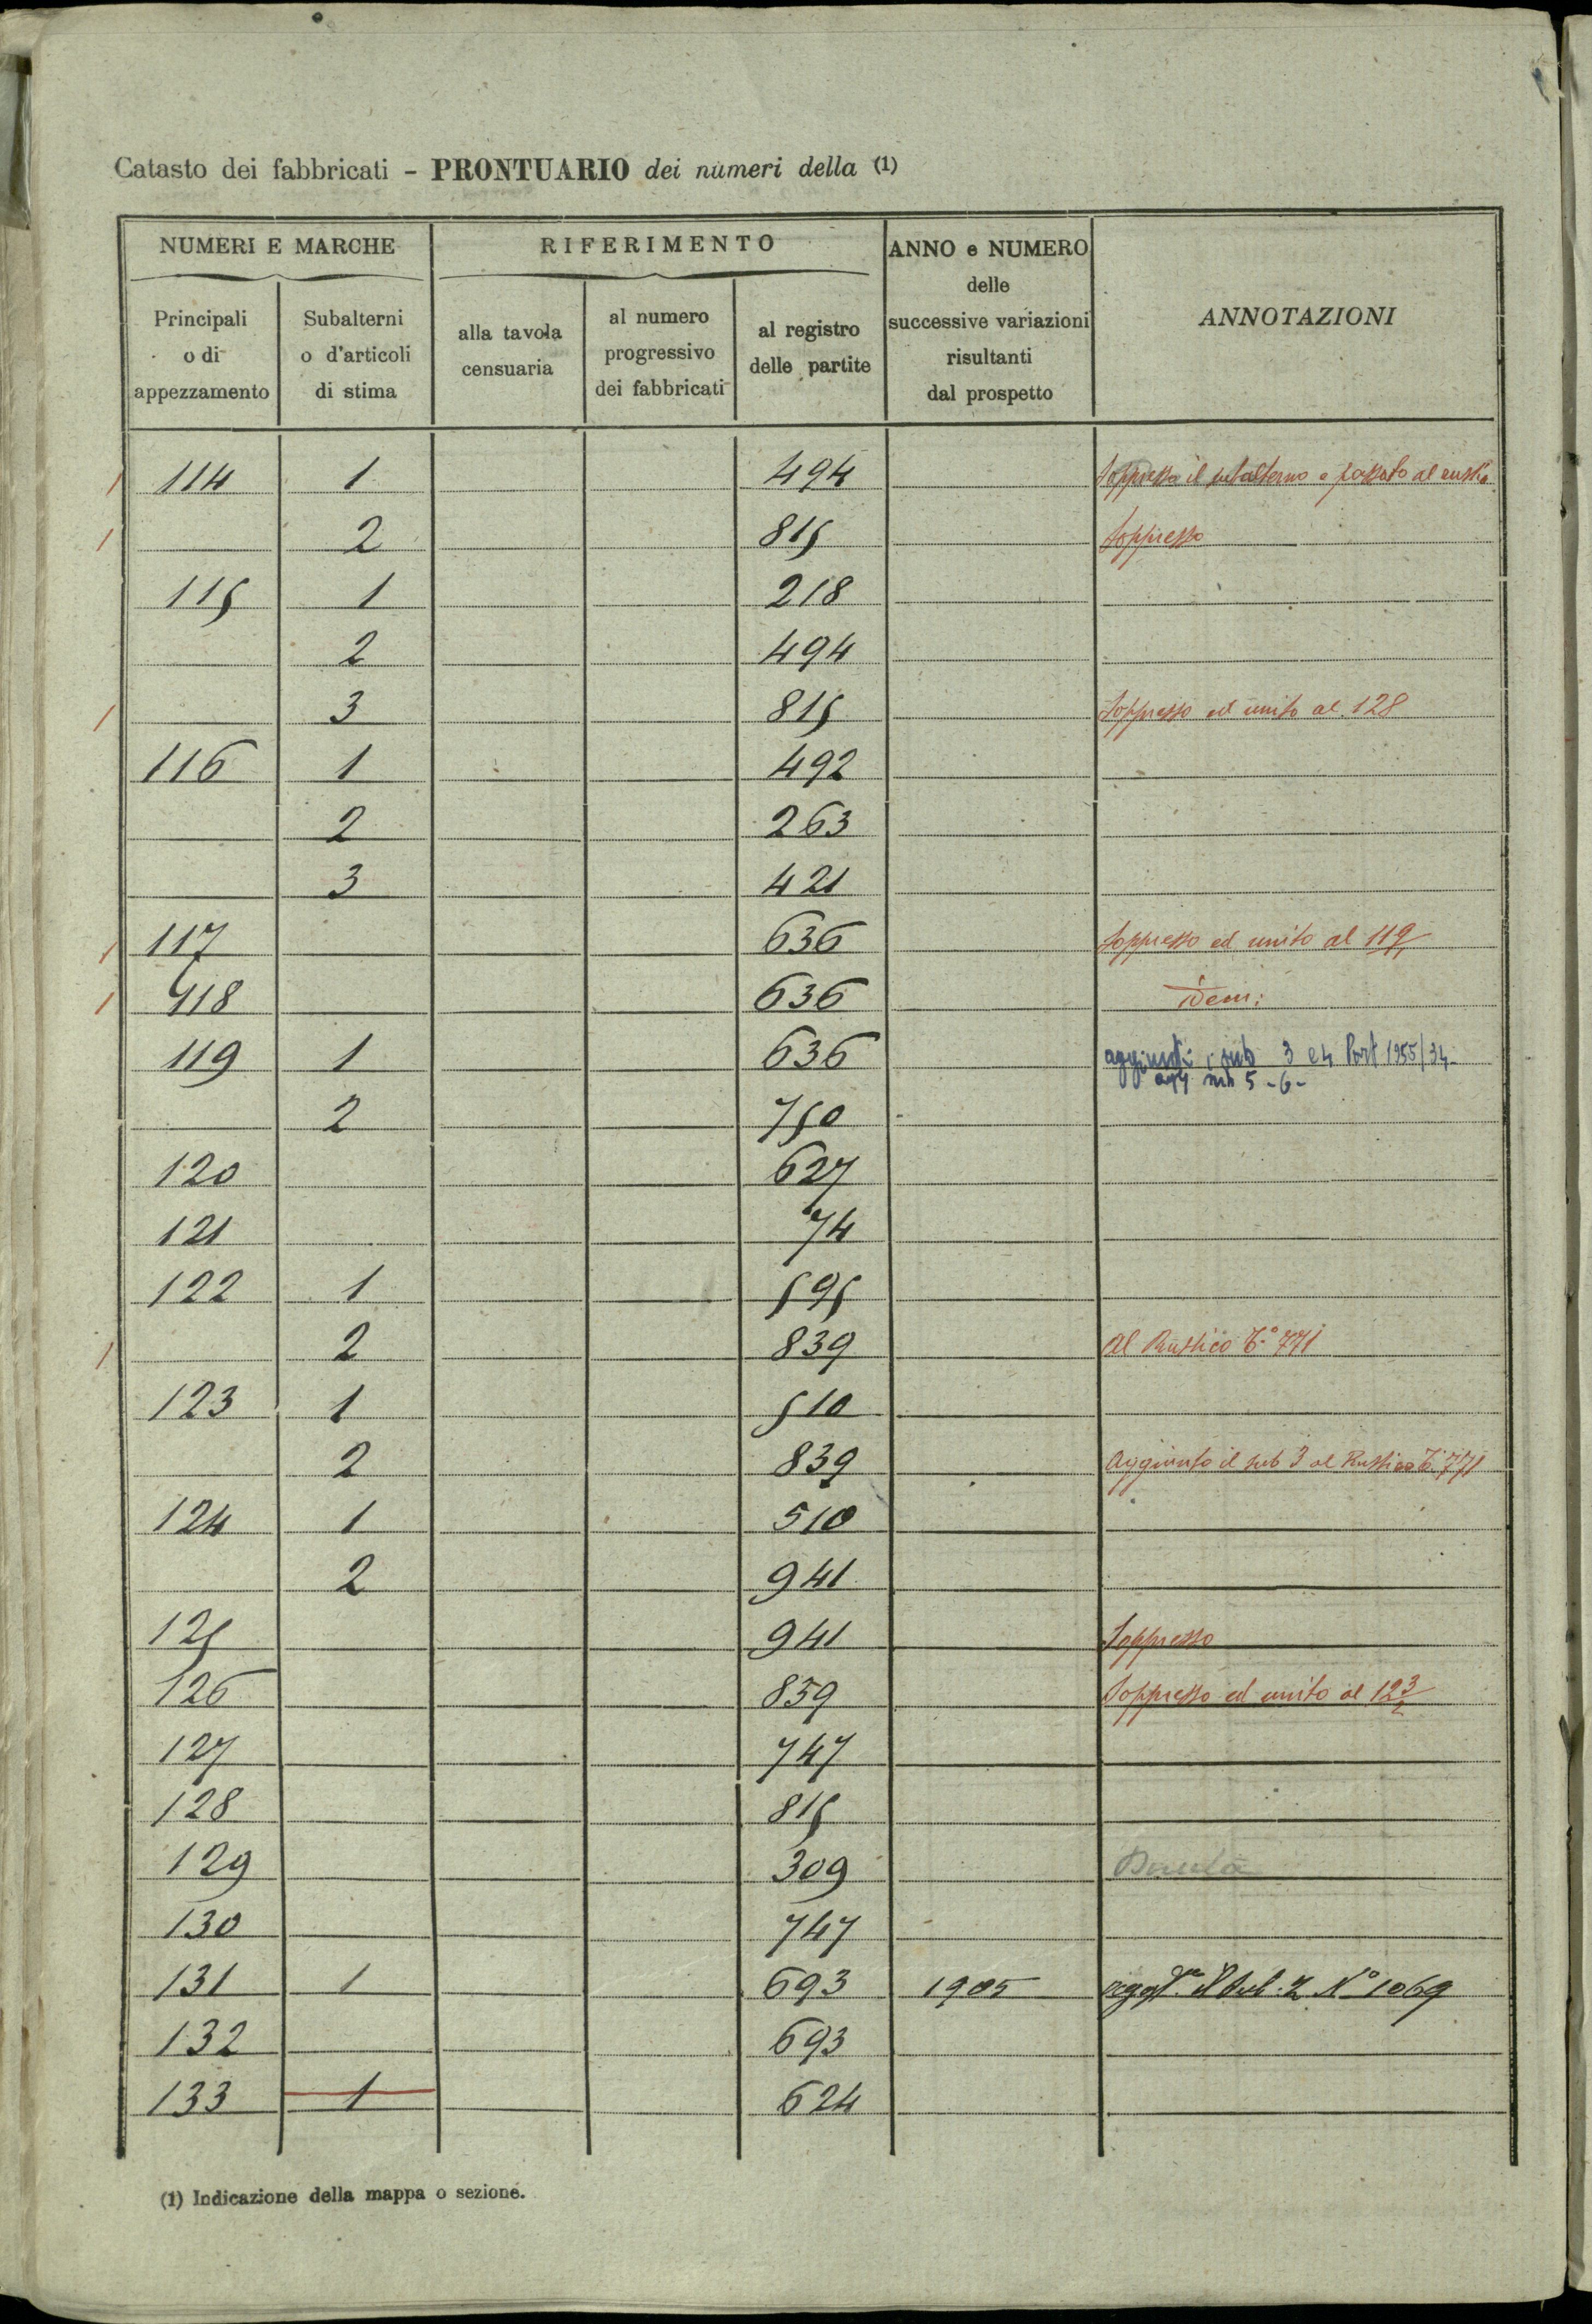 Catasto dei fabbricati - PRONTUARIO dei numeri della (1)
NUMERI E MARCHE
RIFERIMENTO
ANNO e NUMERO
delle
successive variazioni
risultanti
dal prospetto
ANNOTAZIONI
Principali
o di
appezzamento
Subalterni
o d'articoli
di stima
alla tavola
censuaria
al numero
progressivo
dei fabbricati
al registro
delle partite
114 1 494 Soppresso il subalterno e passato al rustico
2 815 Soppresso
115 1 218
2 494
3 815 Soppresso ed unito al 128
116 1 492
2 263
3 421
117 636 Soppresso ed unito al 119/1
118 636 idem:
119 1 636 aggiunti i sub 3 e 4 Part 1955/34
agg sub 5-6-
2 750
120 627
121 74
122 1 595
2 839 Al Rustico 771
123 1 510
2 839 Aggiunto il sub 3 al Rustico 771
124 1 510
2 941
125 941 Soppresso
126 839 Soppresso ed unito al 123/2
127 747
128 815
129 309
130 747
131 1 693 1905 il Sub. 2 N° 1069
132 693
133 1 624
(1) Indicazione della mappa o sezione.